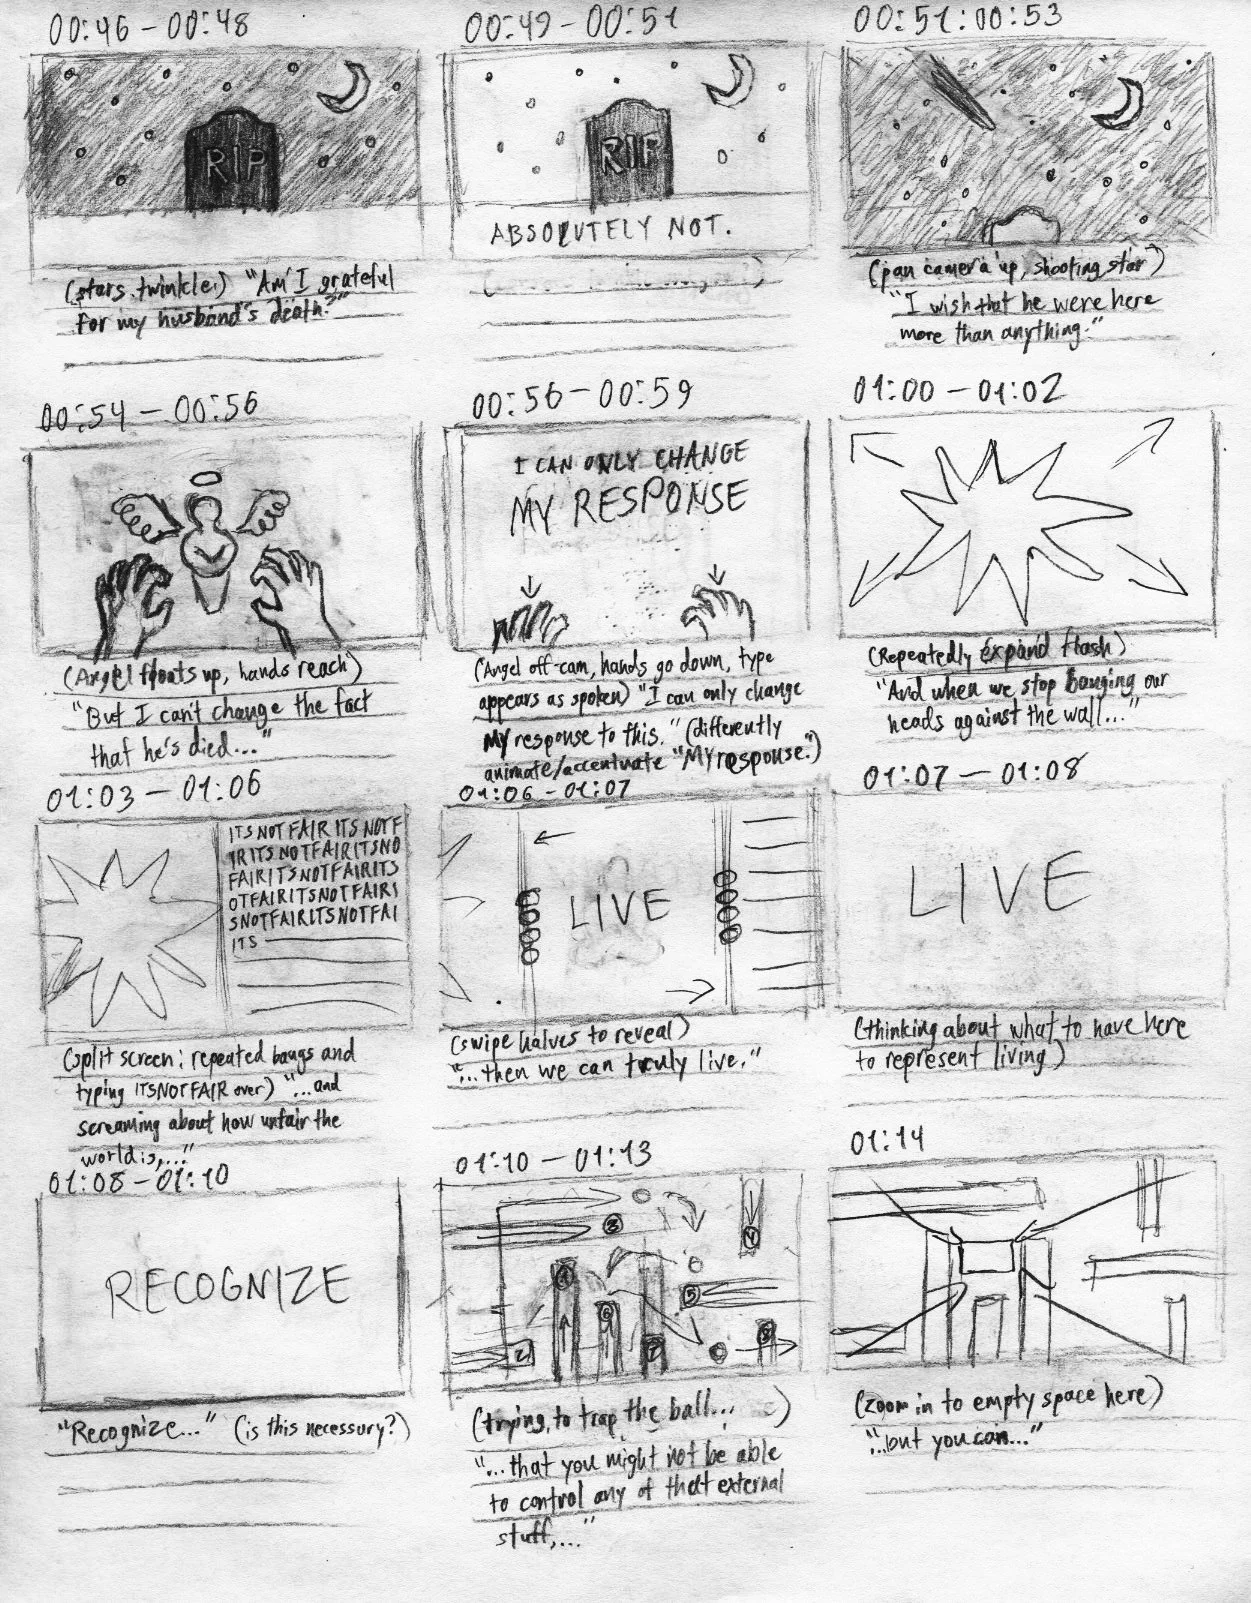 00:46 – 00:48
RIP
(stars twinkle.) "Am I grateful
for my husband's death?"
00:49 – 00:51
RIP
ABSOLUTELY NOT.
00:51:00:53
(pan camera up, shooting star)
"I wish that he were here
more than anything."
00:54 – 00:56
(Angel floats up, hands reach)
"But I can't change the fact
that he's died..."
00:56 – 00:59
I CAN ONLY CHANGE
MY RESPONSE
(Angel off-cam, hands go down, type
appears as spoken) "I can only change
MY response to this." (differently
animate/accentuate "My response.")
01:00 – 01:02
(Repeatedly expand flash)
"And when we stop banging our
heads against the wall..."
01:03 – 01:06
ITS NOT FAIR ITS NOT F
IR ITS NOTFAIRITSNO
FAIRITSNOTFAIRITS
OTFAIRITSNOTFAIRI
SNOTFAIRITSNOTFAI
ITS
(split screen: repeated bangs and
typing ITSNOTFAIR over) "...and
screaming about how unfair the
world is,..."
01:06 – 01:07
LIVE
(swipe halves to reveal)
"...then we can truly live."
01:07 – 01:08
LIVE
(thinking about what to have here
to represent living)
01:08 – 01:10
RECOGNIZE
"Recognize..." (is this necessary?)
01:10 – 01:13
3
4
1
5
6
8
2
7
(trying to trap the ball... )
"...that you might not be able
to control any of that external
stuff,..."
01:14
(zoom in to empty space here)
"...but you can..."